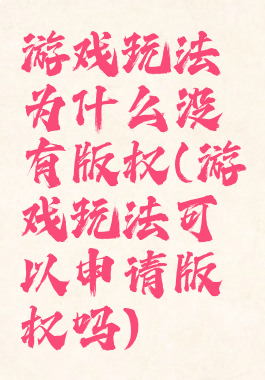 游戏玩法
为什么没
有版权(游
戏玩法可
以申请版
权吗)